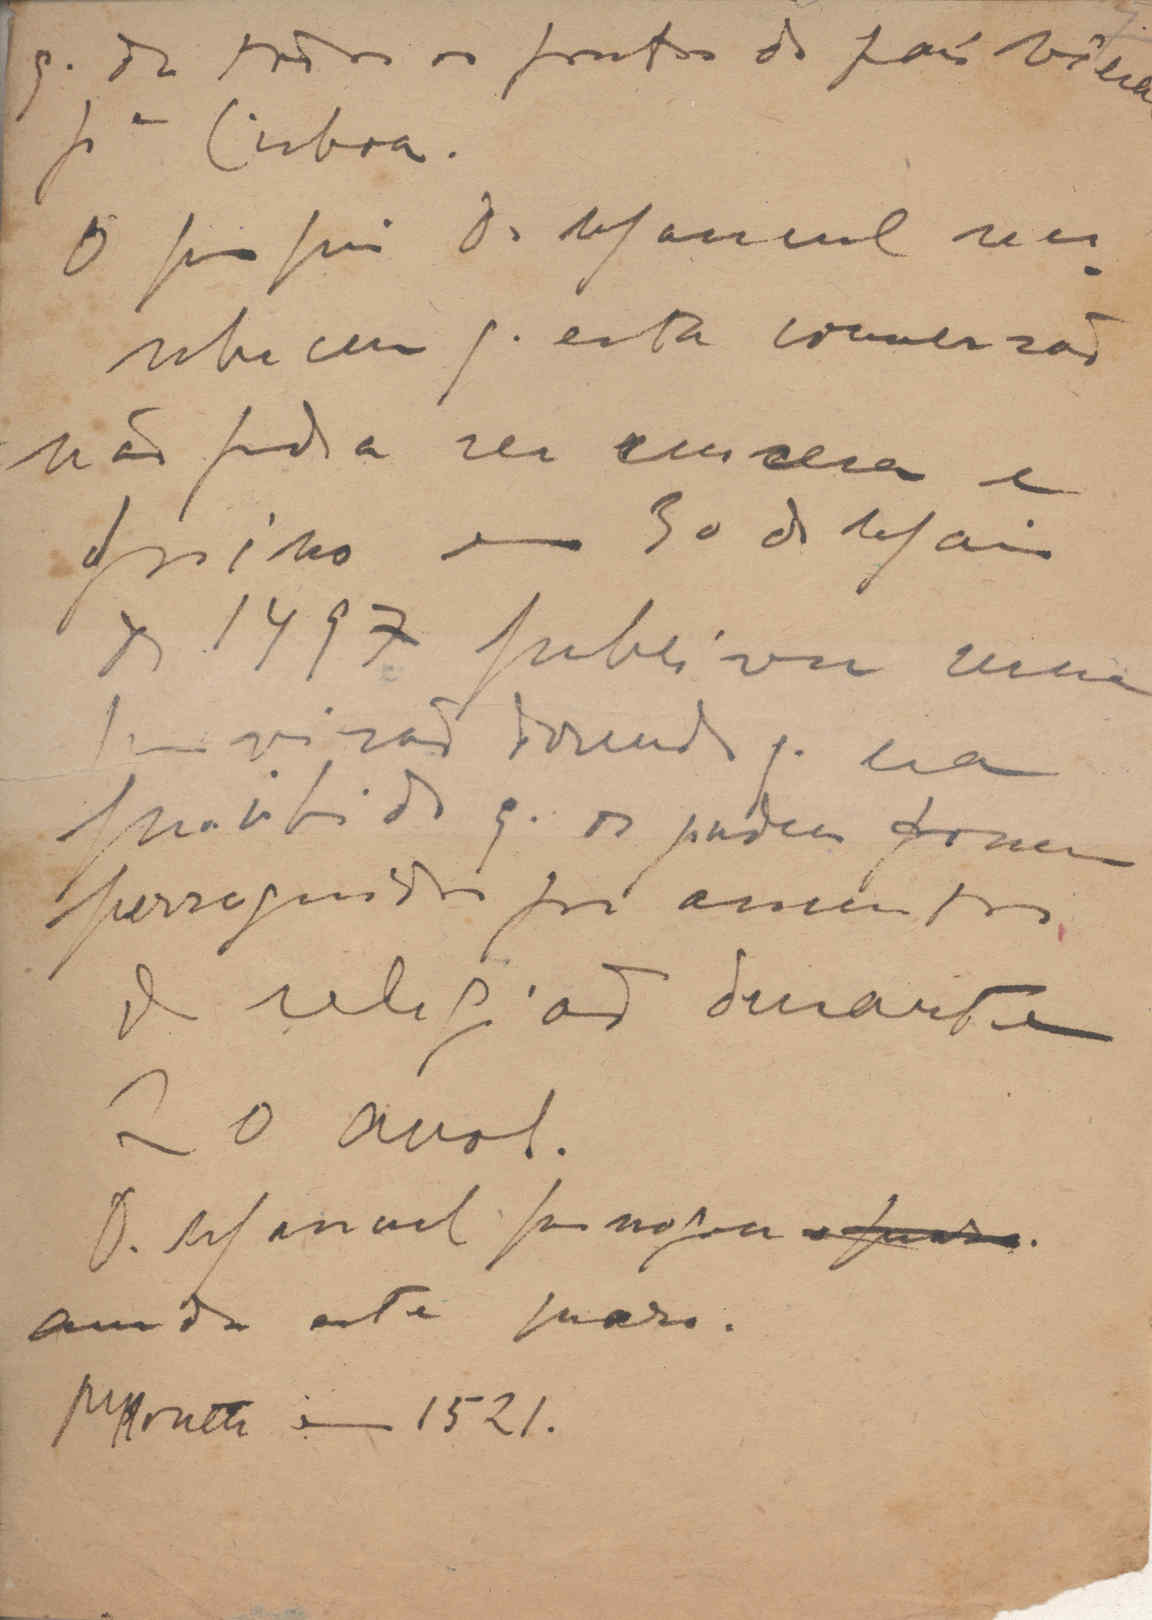 q. de todos os pontos do país viera
pª Lisboa.
O proprio D. Manuel re-
conheceu q. esta conversão
não podia ser sincera e
por isso em 30 de Maio
de 1497 publicou uma
provisão dizendo q. era
proibido q. os judeus fossem
perseguidos por assuntos
de religião durante
20 anos.
D. Manuel prorrogou o prazo.
ainda este prazo.
Morreu em 1521.